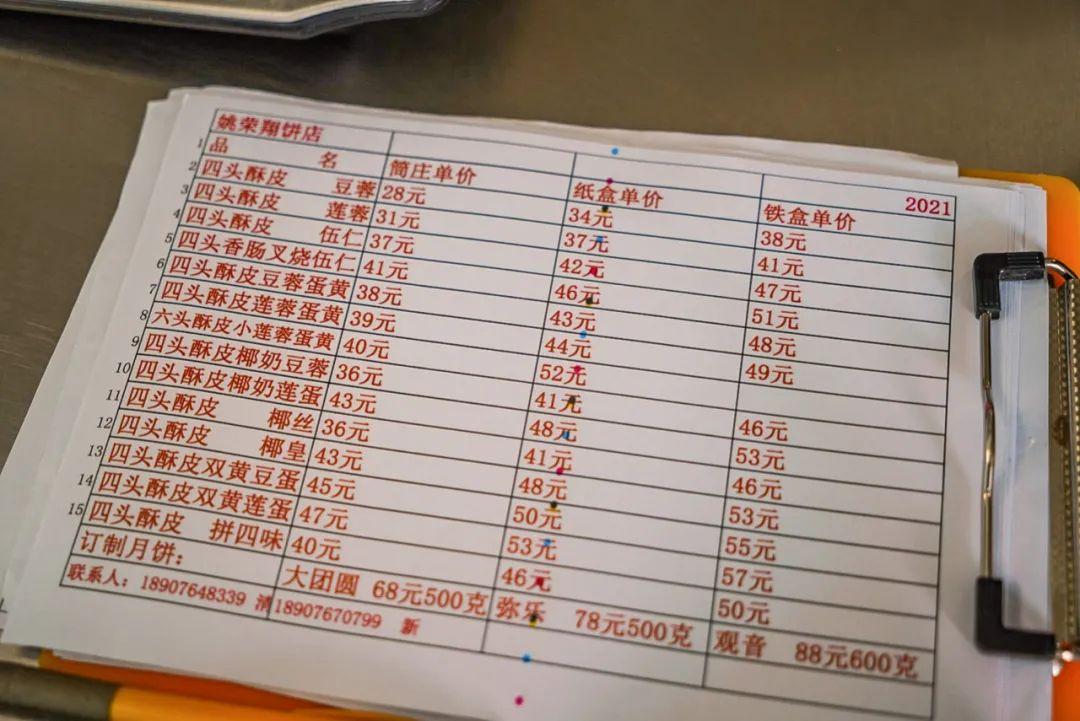 姚荣翔饼店 2021
1 品 名 筒庄单价 纸盒单价 铁盒单价
2 四头酥皮 豆蓉 28元 34元 38元
3 四头酥皮 莲蓉 31元 37元 41元
4 四头酥皮 伍仁 37元 42元 47元
5 四头香肠叉烧伍仁 41元 46元 51元
6 四头酥皮豆蓉蛋黄 38元 43元 48元
7 四头酥皮莲蓉蛋黄 39元 44元 49元
8 六头酥皮小莲蓉蛋黄 40元 52元
9 四头酥皮椰奶豆蓉 36元 41元 46元
10 四头酥皮椰奶莲蛋 43元 48元 53元
11 四头酥皮 椰丝 36元 41元 46元
12 四头酥皮 椰皇 43元 48元 53元
13 四头酥皮双黄豆蛋 45元 50元 55元
14 四头酥皮双黄莲蛋 47元 53元 57元
15 四头酥皮 拼四味 40元 46元 50元
订制月饼： 大团圆 68元500克 弥乐 78元500克 观音 88元600克
联系人：18907648339 清 18907670799 新